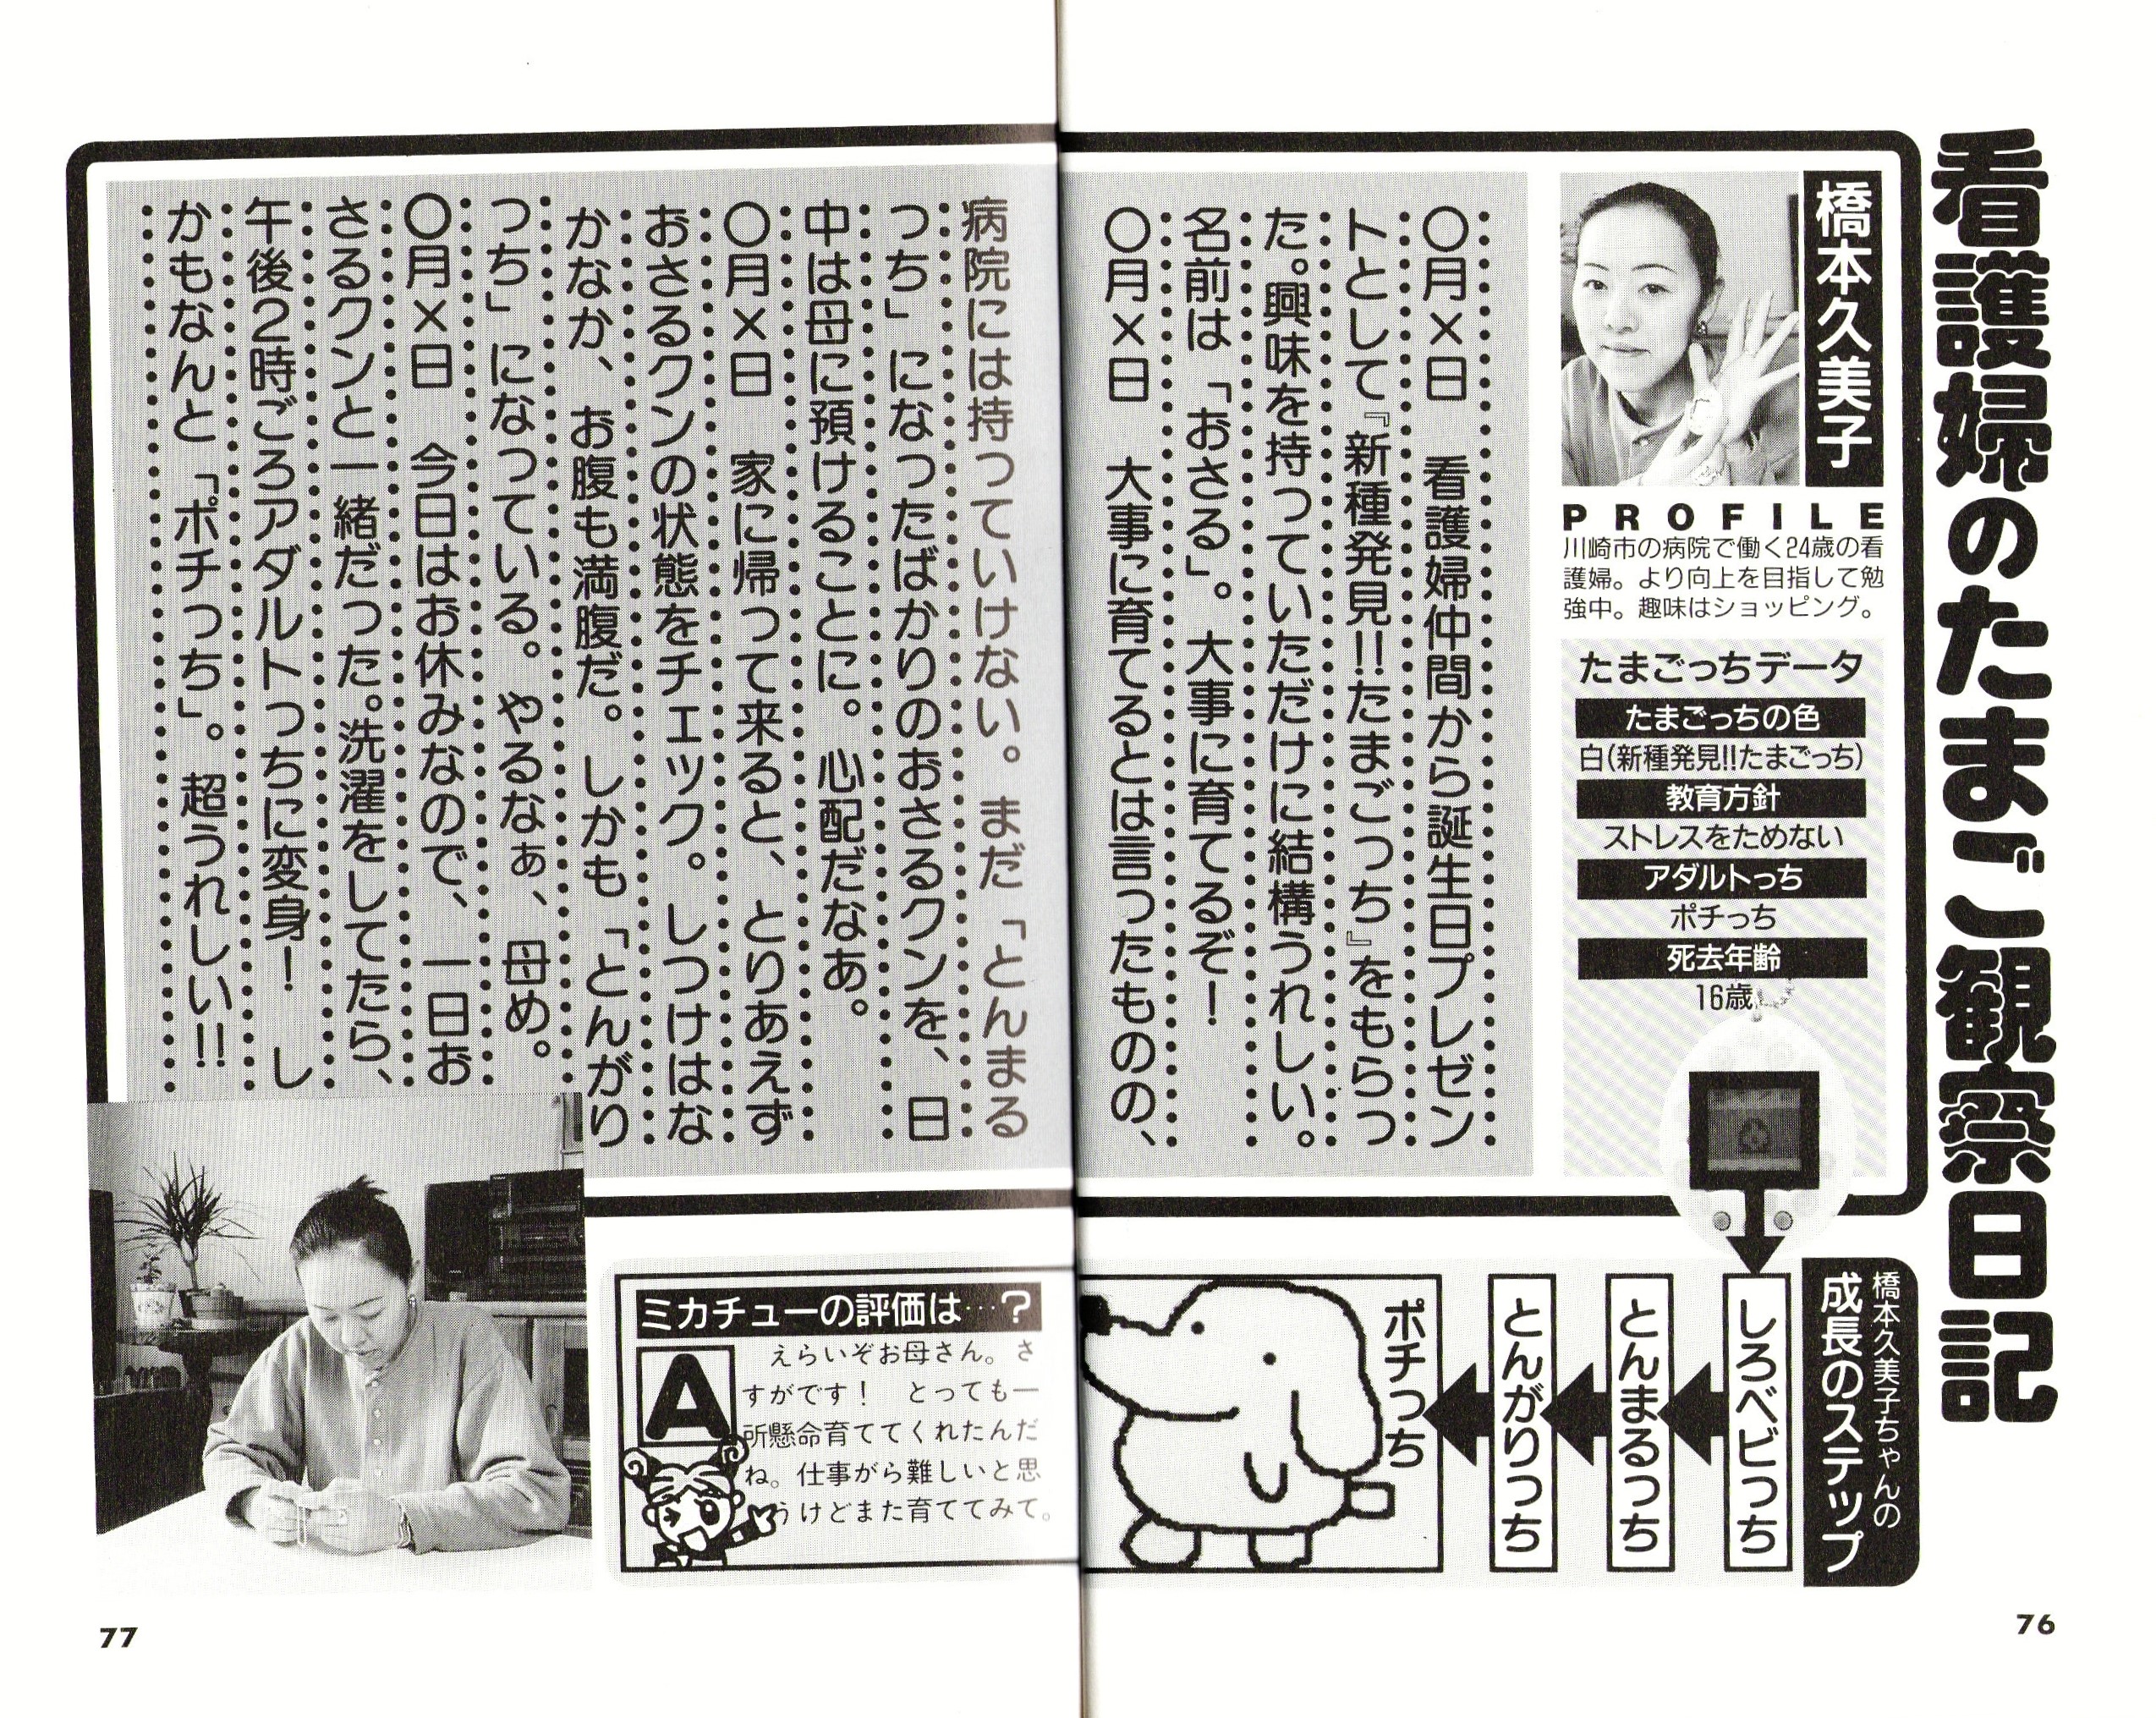 看護婦のたまご観察日記
橋本久美子
PROFILE
川崎市の病院で働く24歳の看
護婦。より向上を目指して勉
強中。趣味はショッピング。
たまごっちデータ
たまごっちの色
白(新種発見!!たまごっち)
教育方針
ストレスをためない
アダルトっち
ポチっち
死去年齢
16歳
〇月×日　看護婦仲間から誕生日プレゼン
トとして『新種発見!!たまごっち』をもらっ
た。興味を持っていただけに結構うれしい。
名前は「おさる」。大事に育てるぞ！
〇月×日　大事に育てるとは言ったものの、
病院には持っていけない。まだ「とんまる
っち」になったばかりのおさるクンを、日
中は母に預けることに。心配だなあ。
〇月×日　家に帰って来ると、とりあえず
おさるクンの状態をチェック。しつけはな
かなか、お腹も満腹だ。しかも「とんがり
っち」になっている。やるなぁ、母め。
〇月×日　今日はお休みなので、一日お
さるクンと一緒だった。洗濯をしてたら、
午後2時ごろアダルトっちに変身！　し
かもなんと「ポチっち」。超うれしい!!
橋本久美子ちゃんの
成長のステップ
しろベビっち
とんまるっち
とんがりっち
ポチっち
ミカチューの評価は…?
A
えらいぞお母さん。さ
すがです！　とっても一
所懸命育ててくれたんだ
ね。仕事がら難しいと思
うけどまた育ててみて。
76
77